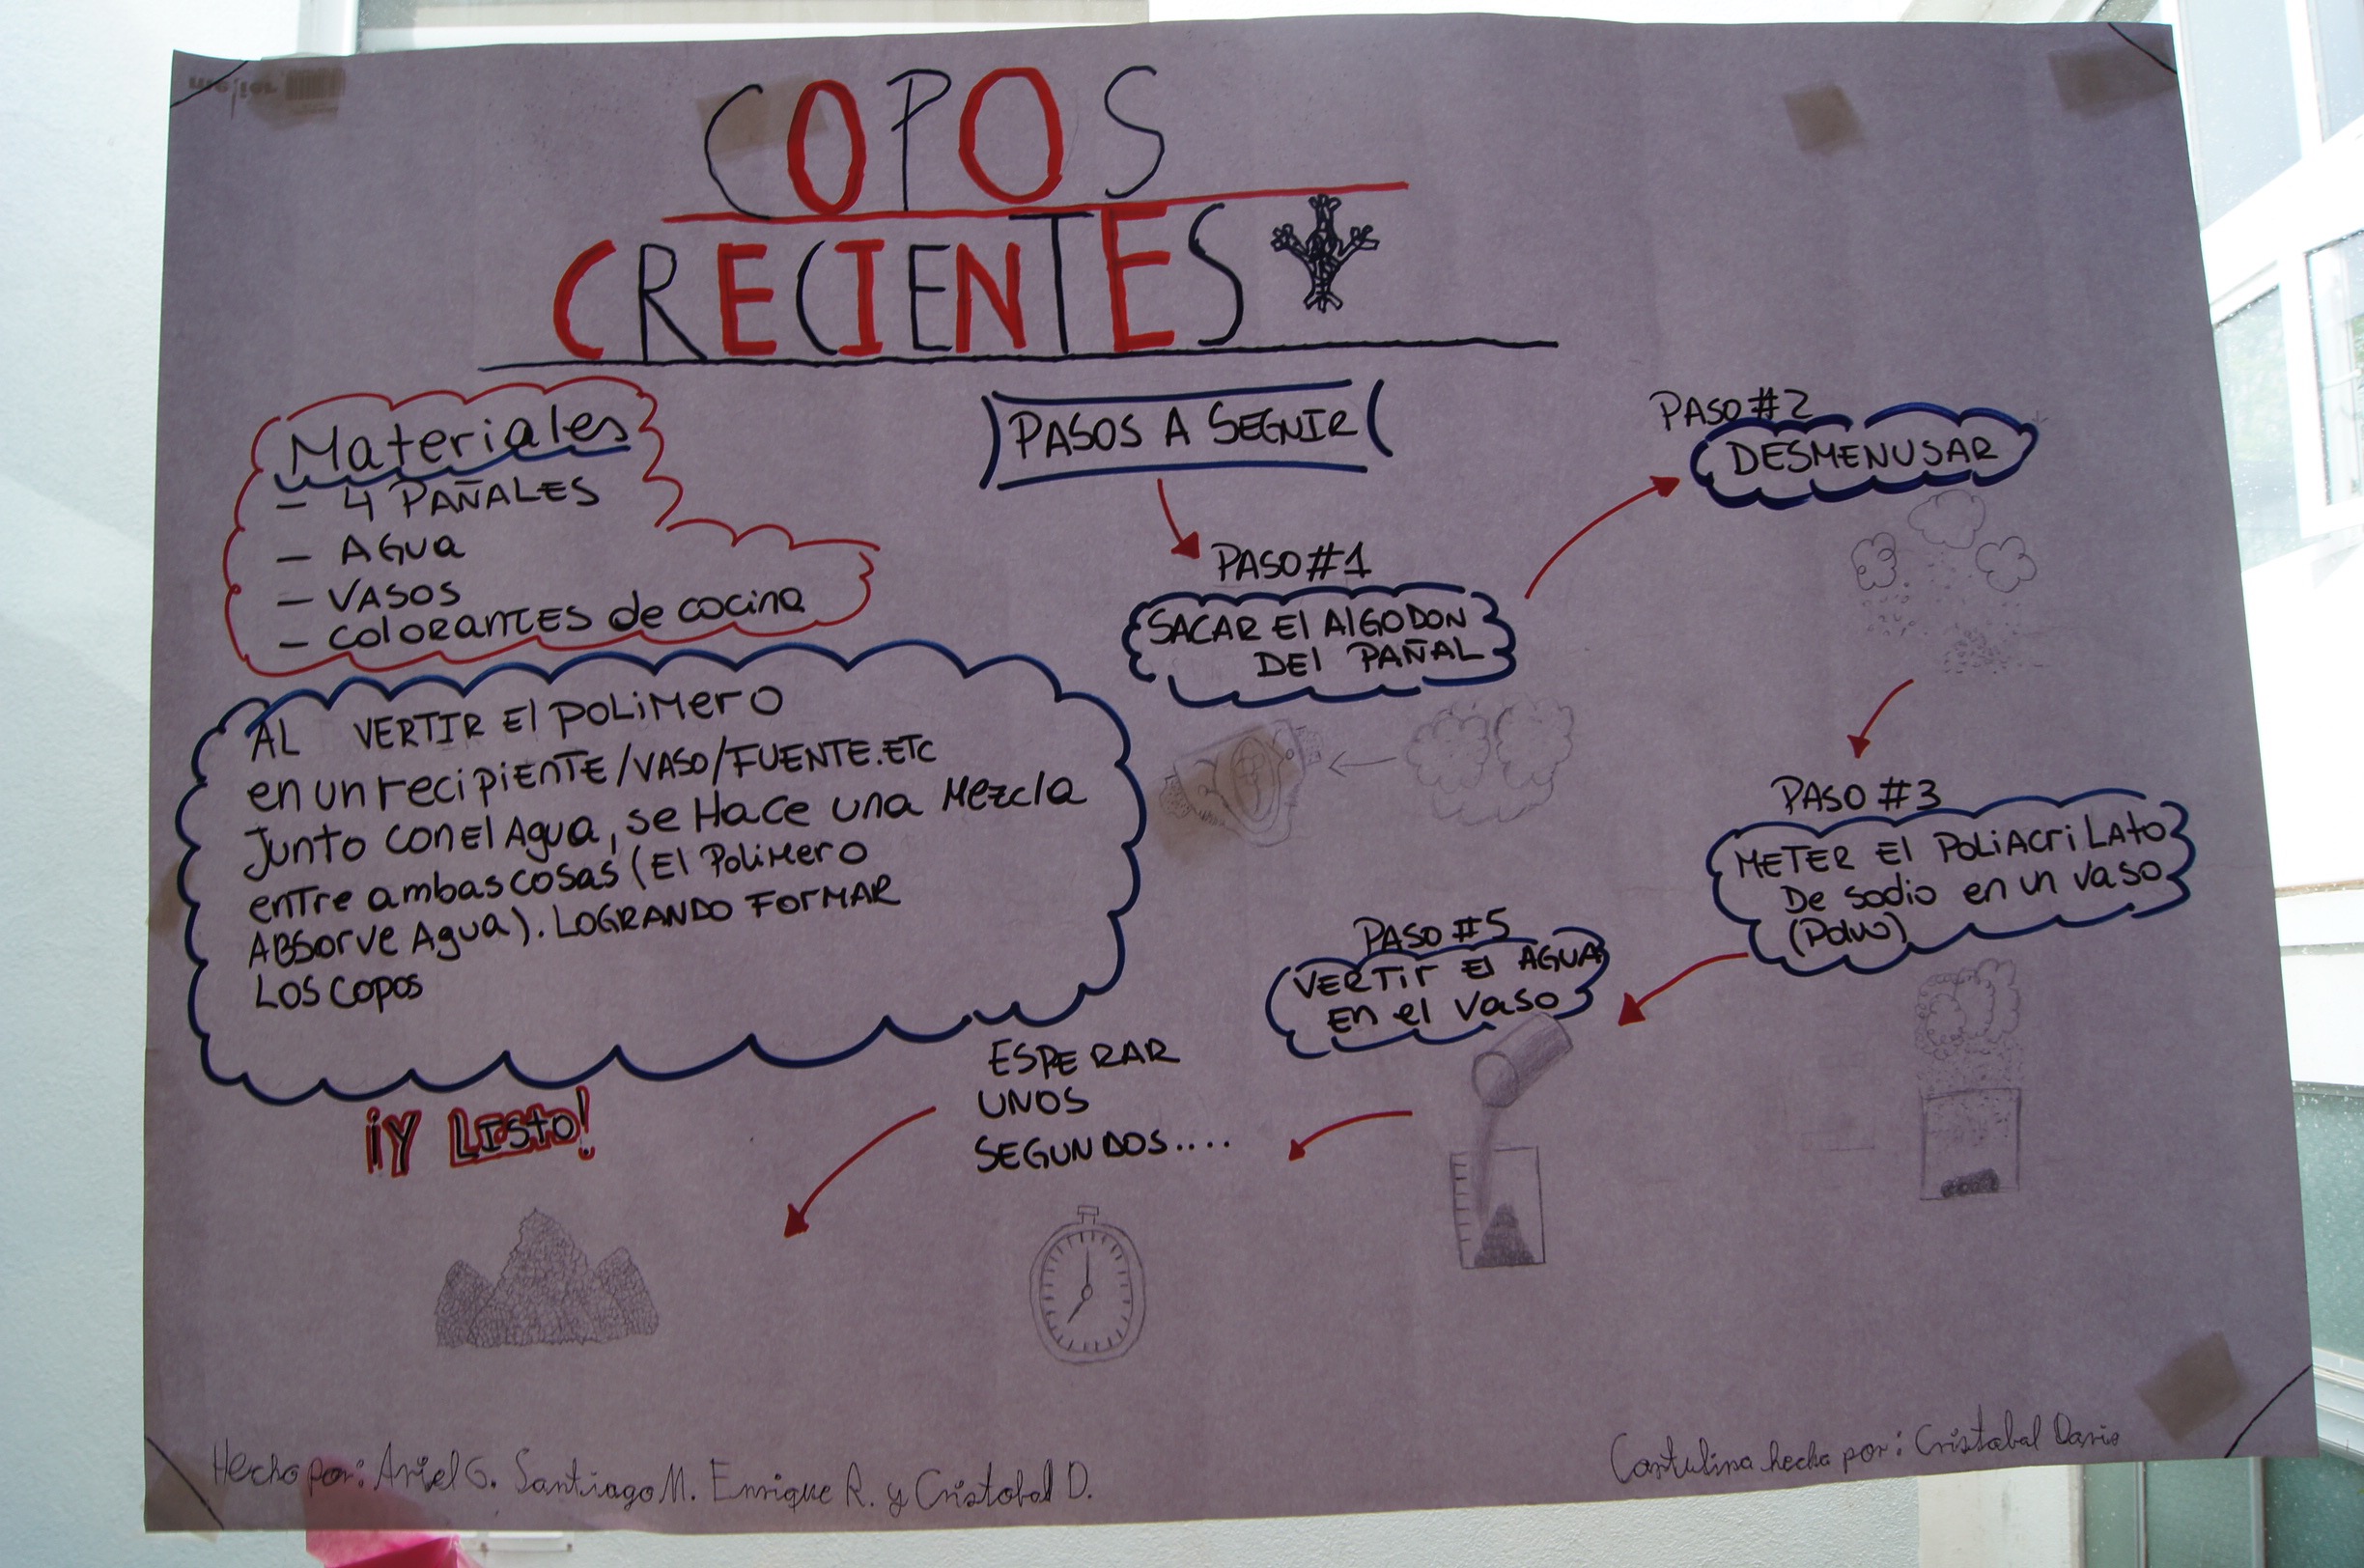 COPOS
CRECIENTES
Materiales
- 4 PAÑALES
- AGUA
- VASOS
- COLORANTES de cocina
PASOS A SEGUIR
PASO #1
SACAR El AlGODON
DEl PAÑAL
PASO #2
DESMENUSAR
PASO #3
METER El POLIACRILATO
De sodio en un vaso
(Polvo)
PASO #5
VERTIR El AGUA
En el vaso
ESPERAR
UNOS
SEGUNDOS....
AL VERTIR El POLIMERO
en un recipiente/VASO/FUENTE.ETC
Junto con El Agua, se Hace una Mezcla
entre ambas cosas (El Polimero
ABSORVE Agua). LOGRANDO FORMAR
LOS COPOS
¡Y LISTO!
Hecho por: Ariel G. Santiago M. Enrique R. y Cristobal D.
Cartulina hecha por: Cristobal Dario